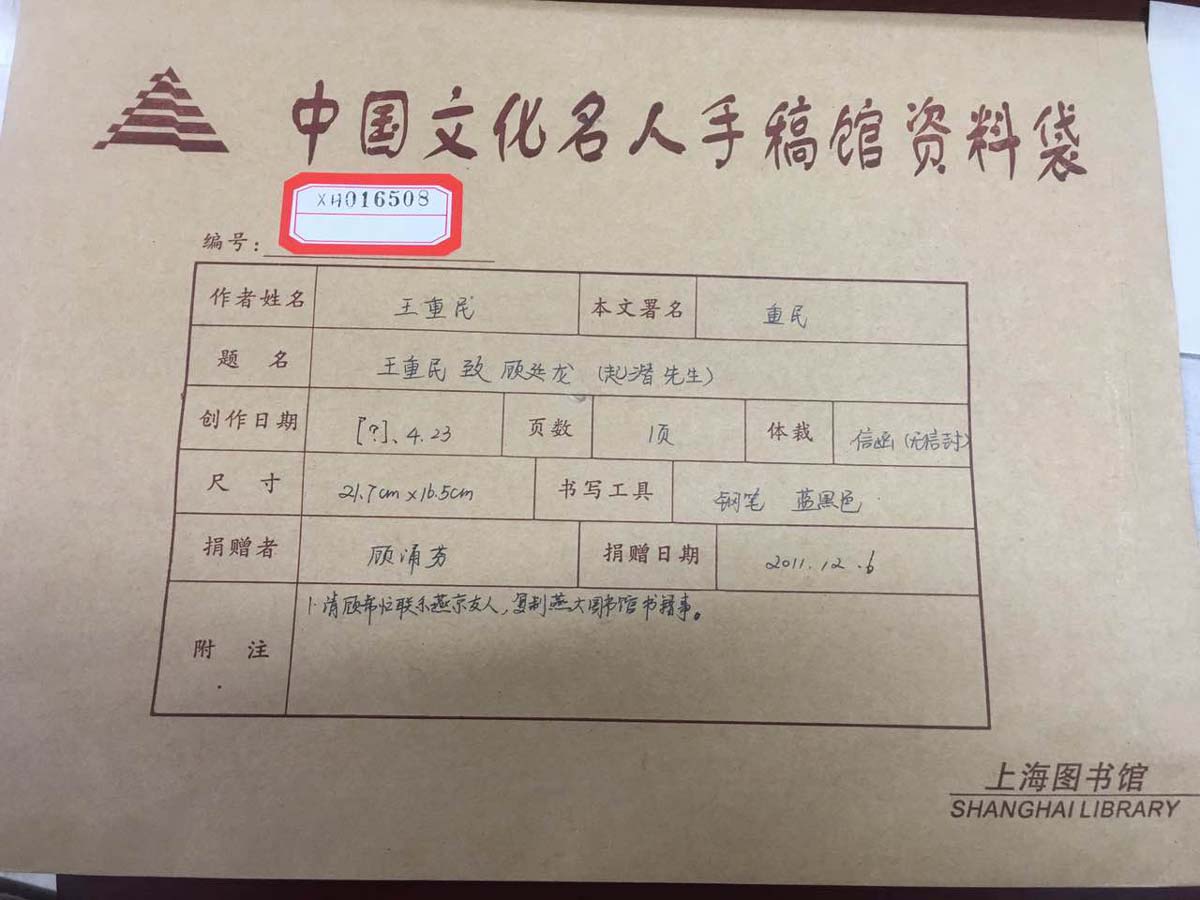 中国文化名人手稿馆资料袋
XH016508
编号：
作者姓名 王重民 本文署名 重民
题名 王重民致顾廷龙（起潜先生）
创作日期 [?]、4.23 页数 1页 体裁 信函（无信封）
尺寸 21.7cm×16.5cm 书写工具 钢笔 蓝黑色
捐赠者 顾诵芬 捐赠日期 2011.12.6
附注 1.请顾帮忙联系燕京友人，复制燕大图书馆书籍事。
上海图书馆
SHANGHAI LIBRARY